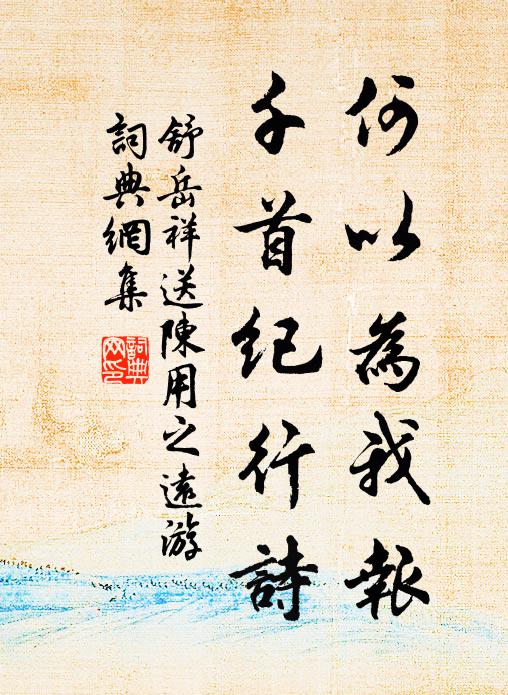 何以為我報
千首紀行詩
舒岳祥送陳用之遠游
詞典網集
詞典
网印